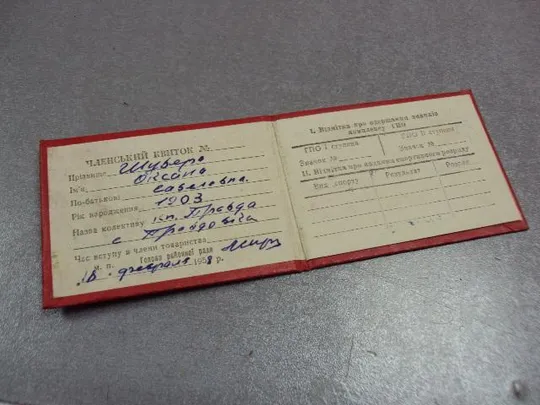 ЧЛЕНСЬКИЙ КВИТОК №
Прізвище Шувера
Ім'я Оксана
По-батькові Савеловна
Рік народження 1903
Назва колективу к-п. Правда
с
Час вступу в члени товариства
М. п. Голова районної ради
16 февраля 1958 р.
I. Відмітка про одержання значків
комплексу ГПО
ГПО I ступеня ГПО II ступеня
Значок № Значок №
II. Відмітка про надання спортивного розряду
Вид спорту Результат Розряд